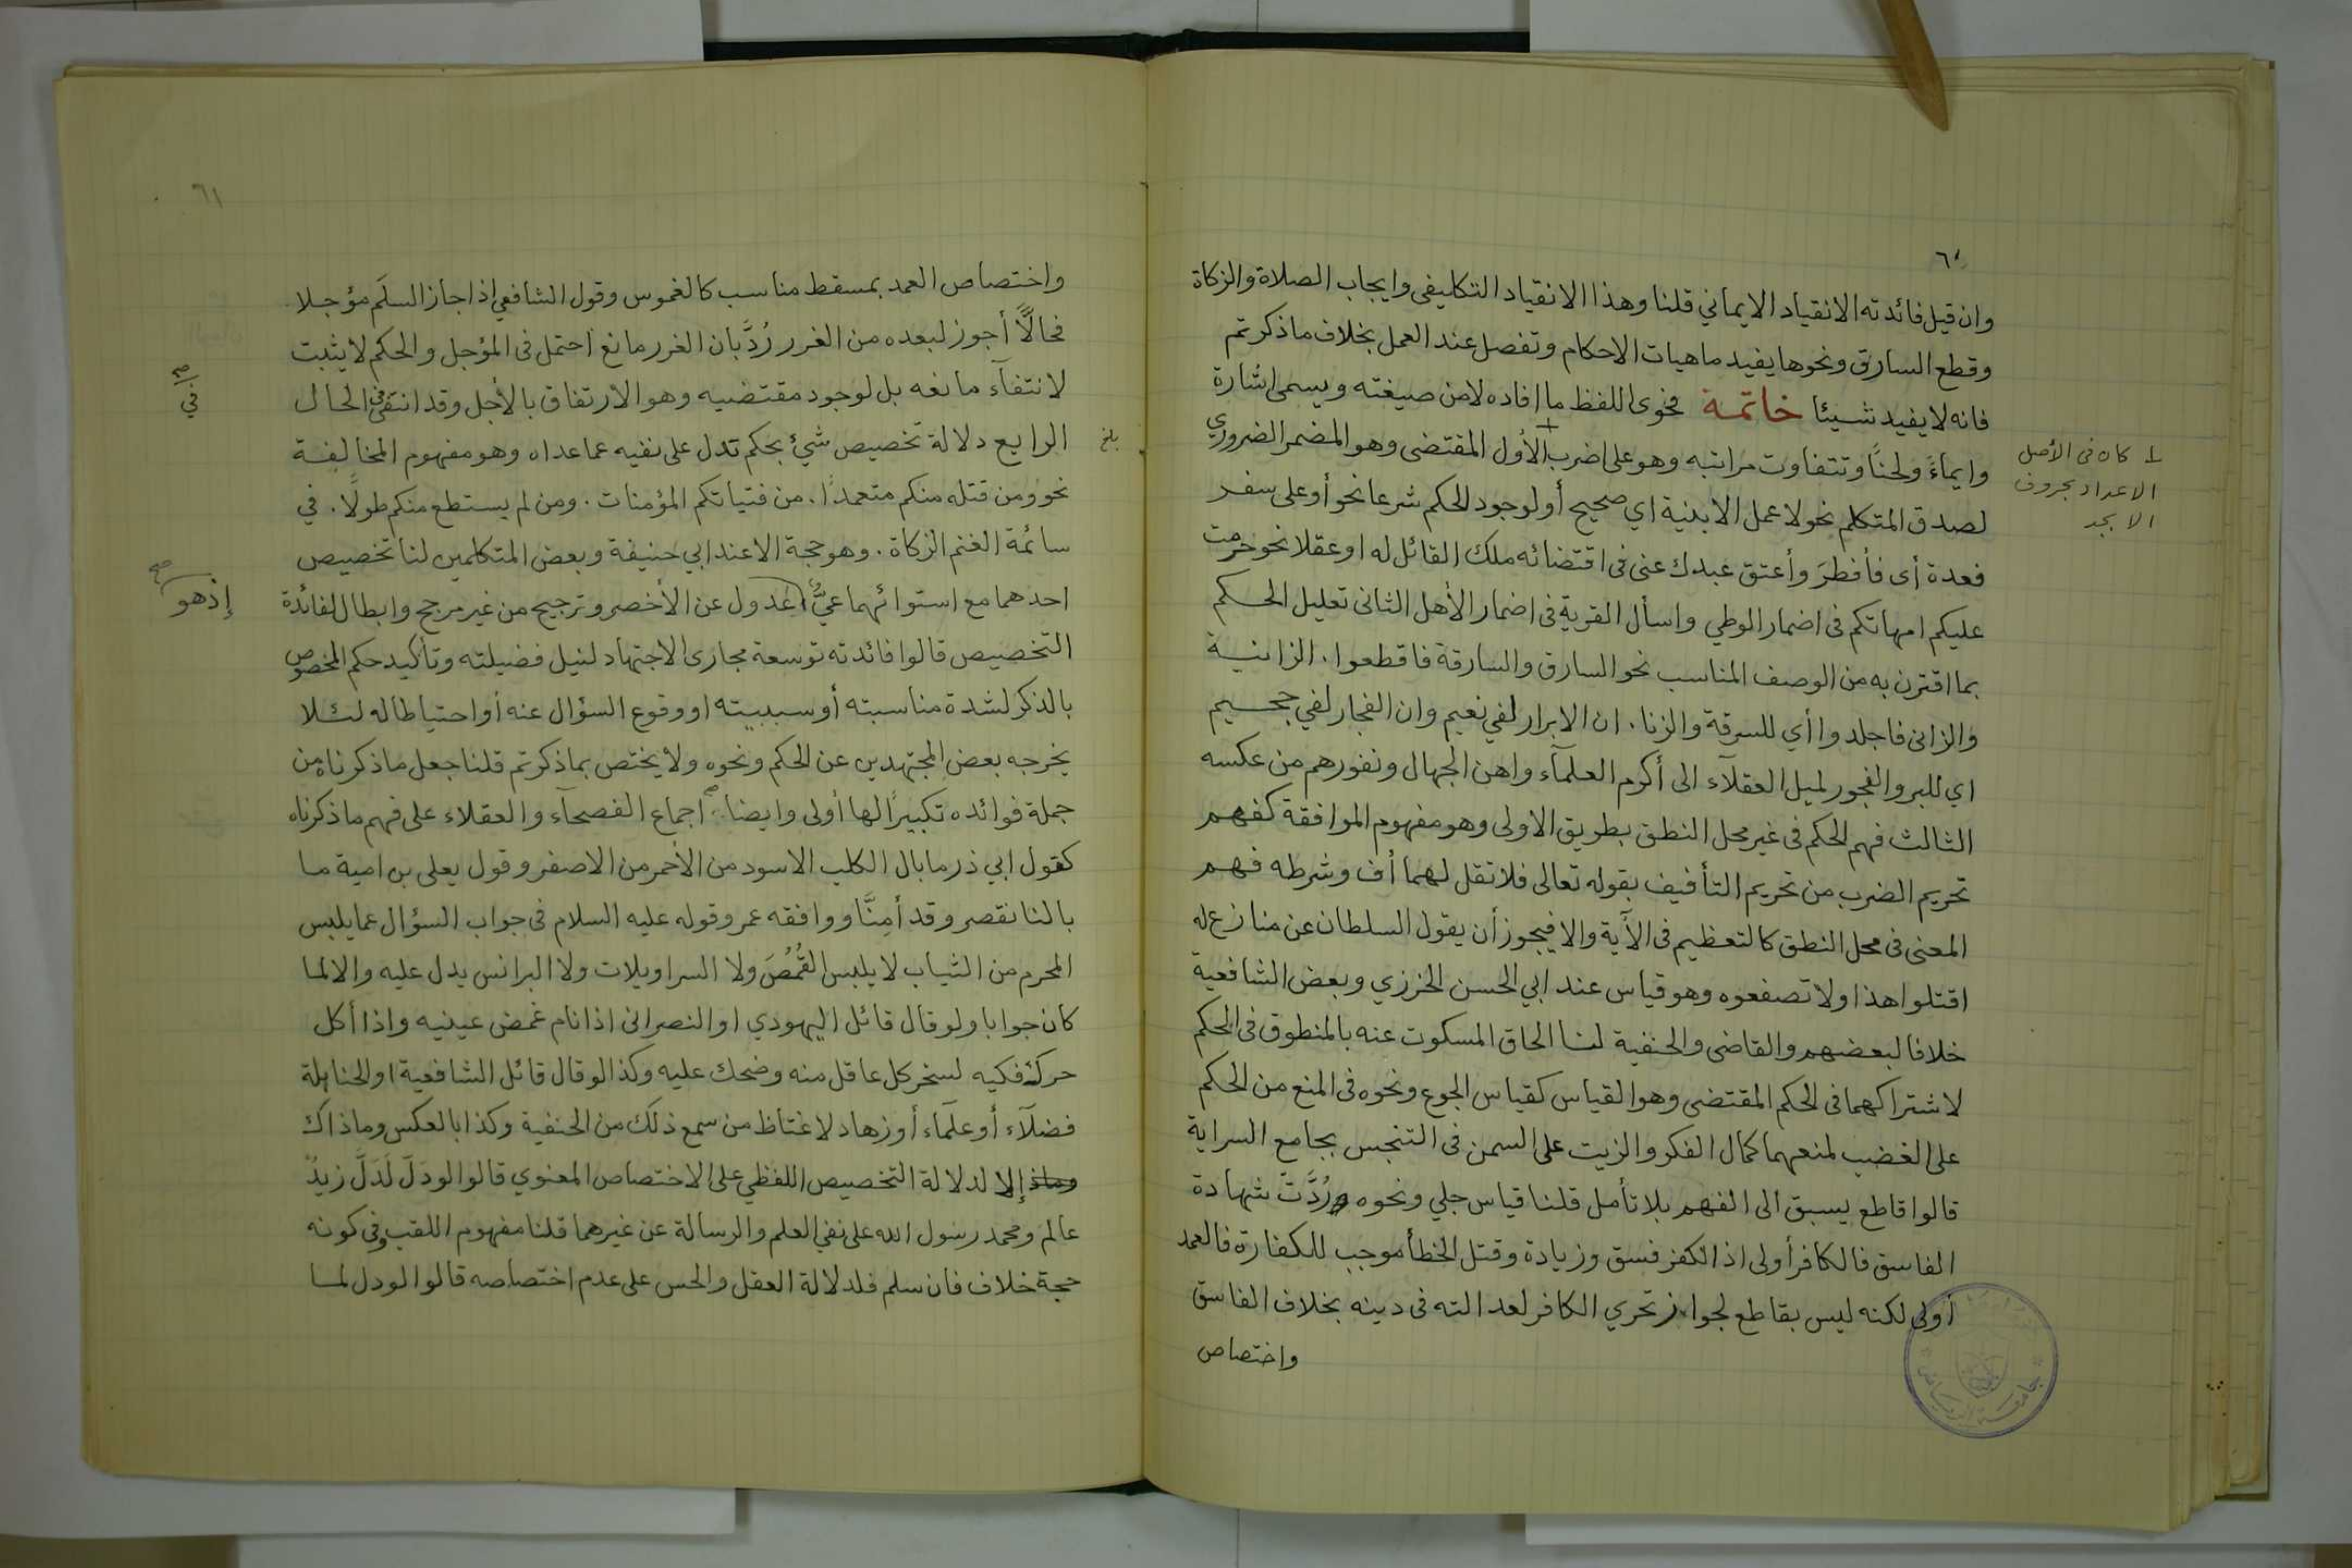 ٦٠
وان قيل فائدته الانقياد الايماني قلنا وهذا الانقياد التكليفى وايجاب الصلاة والزكاة
وقطع السارق ونحوها يفيد ماهيات الاحكام وتفصل عند العمل بخلاف ما ذكرتم
فانه لا يفيد شيئا خاتمة فحوى اللفظ ما افاده لا من صيغته ويسمى اشارة
وايماءً ولحنًا وتتفاوت مراتبه وهو على اضرب الأول المقتضى وهو المضمر الضروري
⊥ كان فى الأصل
الاعداد بحروف
الابجد
لصدق المتكلم نحو لا عمل الا بنية اي صحيح أو لوجود الحكم شرعا نحو أو على سفر
فعدة أى فأفطرَ وأعتق عبدك عنى فى اقتضائه ملك القائل له او عقلا نحو حرمت
عليكم امهاتكم فى اضمار الوطي واسأل القرية فى اضمار الأهل الثانى تعليل الحكم
بما اقترن به من الوصف المناسب نحو السارق والسارقة فاقطعوا. الزانية
والزانى فاجلدوا أي للسرقة والزنا. ان الابرار لفي نعيم وان الفجار لفي جحيم
اي للبر والفجور لميل العقلآء الى أكرم العلمآء واهن الجهال ونفورهم من عكسه
الثالث فهم الحكم فى غير محل النطق بطريق الاولى وهو مفهوم الموافقة كفهم
تحريم الضرب من تحريم التأفيف بقوله تعالى فلا تقل لهما أف وشرطه فهم
المعنى فى محل النطق كالتعظيم فى الآية والا فيجوز أن يقول السلطان عن منازع له
اقتلوا هذا ولا تصفعوه وهو قياس عند ابي الحسن الخرزي وبعض الشافعية
خلافا لبعضهم والقاضى والحنفية لنا الحاق المسكوت عنه بالمنطوق فى الحكم
لاشتراكهما فى الحكم المقتضى وهو القياس كقياس الجوع ونحوه فى المنع من الحكم
على الغضب لمنعهما كمال الفكر والزيت على السمن فى التنجس بجامع السراية
قالوا قاطع يسبق الى الفهم بلا تأمل قلنا قياس جلي ونحوه رُدَّتْ شهادة
الفاسق فالكافر أولى اذ الكفر فسق وزيادة وقتل الخطأ موجب للكفارة فالعمد
أولى لكنه ليس بقاطع لجواز تحري الكافر لعدالته فى دينه بخلاف الفاسق
واختصاص
٦١
واختصاص العمد بمسقط مناسب كالغموس وقول الشافعي اذا جاز السلَم مؤجلا
فحالًّا أجوز لبعده من الغرر رُدَّ بان الغرر مانع احتمل فى المؤجل والحكم لا يثبت
لانتفآء مانعه بل لوجود مقتضيه وهو الارتفاق بالأجل وقد انتفى فى الحال
في صح
الرابع دلالة تخصيص شيئ بحكم تدل على نفيه عما عداه وهو مفهوم المخالفة
بلغ
نحو ومن قتله منكم متعمدًا. من فتياتكم المؤمنات. ومن لم يستطع منكم طولًا. في
سائمة الغنم الزكاة. وهو حجة الا عند ابي حنيفة وبعض المتكلمين لنا تخصيص
احدهما مع استوائهما عيٌّ عدول عن الأخصر وترجيح من غير مرجح وابطال لفائدة
إذ هو صح
التخصيص قالوا فائدته توسعة مجارى الاجتهاد لنيل فضيلته وتأكيد حكم المخصوص
بالذكر لشدة مناسبته أو سببيته او وقوع السؤال عنه أو احتياطا له لئلا
يخرجه بعض المجتهدين عن الحكم ونحوه ولا يختص بما ذكرتم قلنا جعل ما ذكرناه من
جملة فوائده تكبيرًا لها أولى وايضا اجماع الفصحآء والعقلاء على فهم ما ذكرناه
كقول ابي ذر ما بال الكلب الاسود من الأحمر من الاصفر وقول يعلى بن امية ما
بالنا نقصر وقد أمِنَّا ووافقه عمر وقوله عليه السلام فى جواب السؤال عما يلبس
المحرم من الثياب لا يلبس القُمُصَ ولا السراويلات ولا البرانس يدل عليه والا لما
كان جوابا ولو قال قائل اليهودي او النصرانى اذا نام غمض عينيه واذا أكل
حرك فكيه لسخر كل عاقل منه وضحك عليه وكذا لو قال قائل الشافعية او الحنابلة
فضلآء أو علمآء أو زهاد لاغتاظ من سمع ذلك من الحنفية وكذا بالعكس وماذاك
وماذ إلا لدلالة التخصيص اللفظي على الاختصاص المعنوي قالوا لو دَلَّ لَدَلَّ زيدٌ
عالم ومحمد رسول الله على نفي العلم والرسالة عن غيرهما قلنا مفهوم اللقب وفى كونه
حجة خلاف فان سلم فلدلالة العقل والحس على عدم اختصاصه قالوا لو دل لما